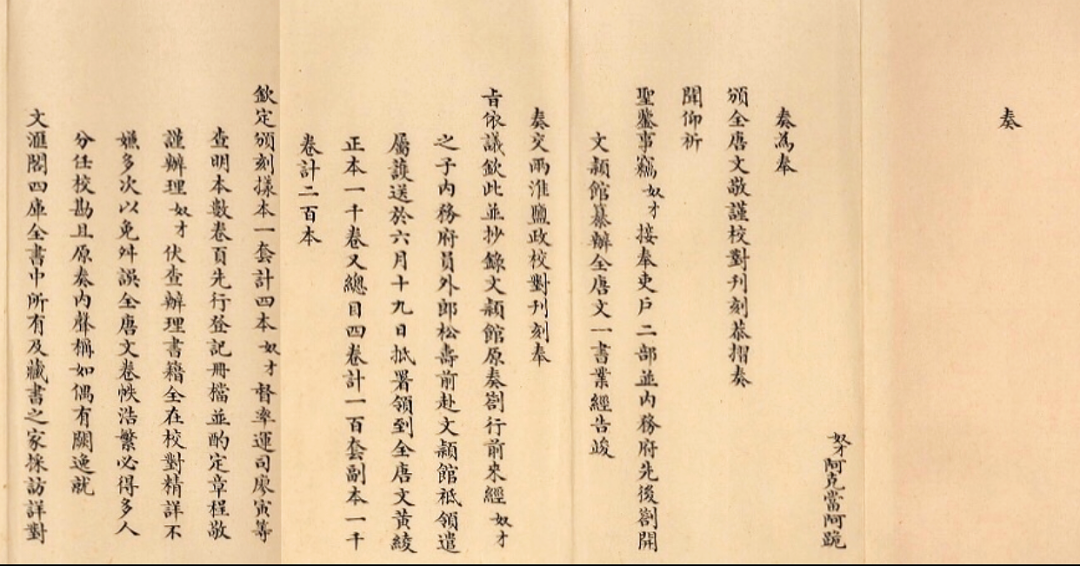 奏
奴才阿克當阿跪
奏為奉
頒全唐文敬謹校對刊刻恭摺奏
聞仰祈
聖鑒事竊奴才接奉吏戶二部並內務府先後劄開
文穎館纂辦全唐文一書業經告竣
奏交兩淮鹽政校對刊刻奉
旨依議欽此並抄錄文穎館原奏劄行前來經奴才
之子內務府員外郎松壽前赴文穎館祗領遣
屬護送於六月十九日抵署領到全唐文黃綾
正本一千卷又總目四卷計一百套副本一千
卷計二百本
欽定頒刻樣本一套計四本奴才督率運司廖寅等
查明本數卷頁先行登記冊檔並酌定章程敬
謹辦理奴才伏查辦理書籍全在校對精詳不
嫌多次以免舛誤全唐文卷帙浩繁必得多人
分任校勘且原奏內聲稱如偶有闕逸就
文滙閣四庫全書中所有及藏書之家採訪詳對